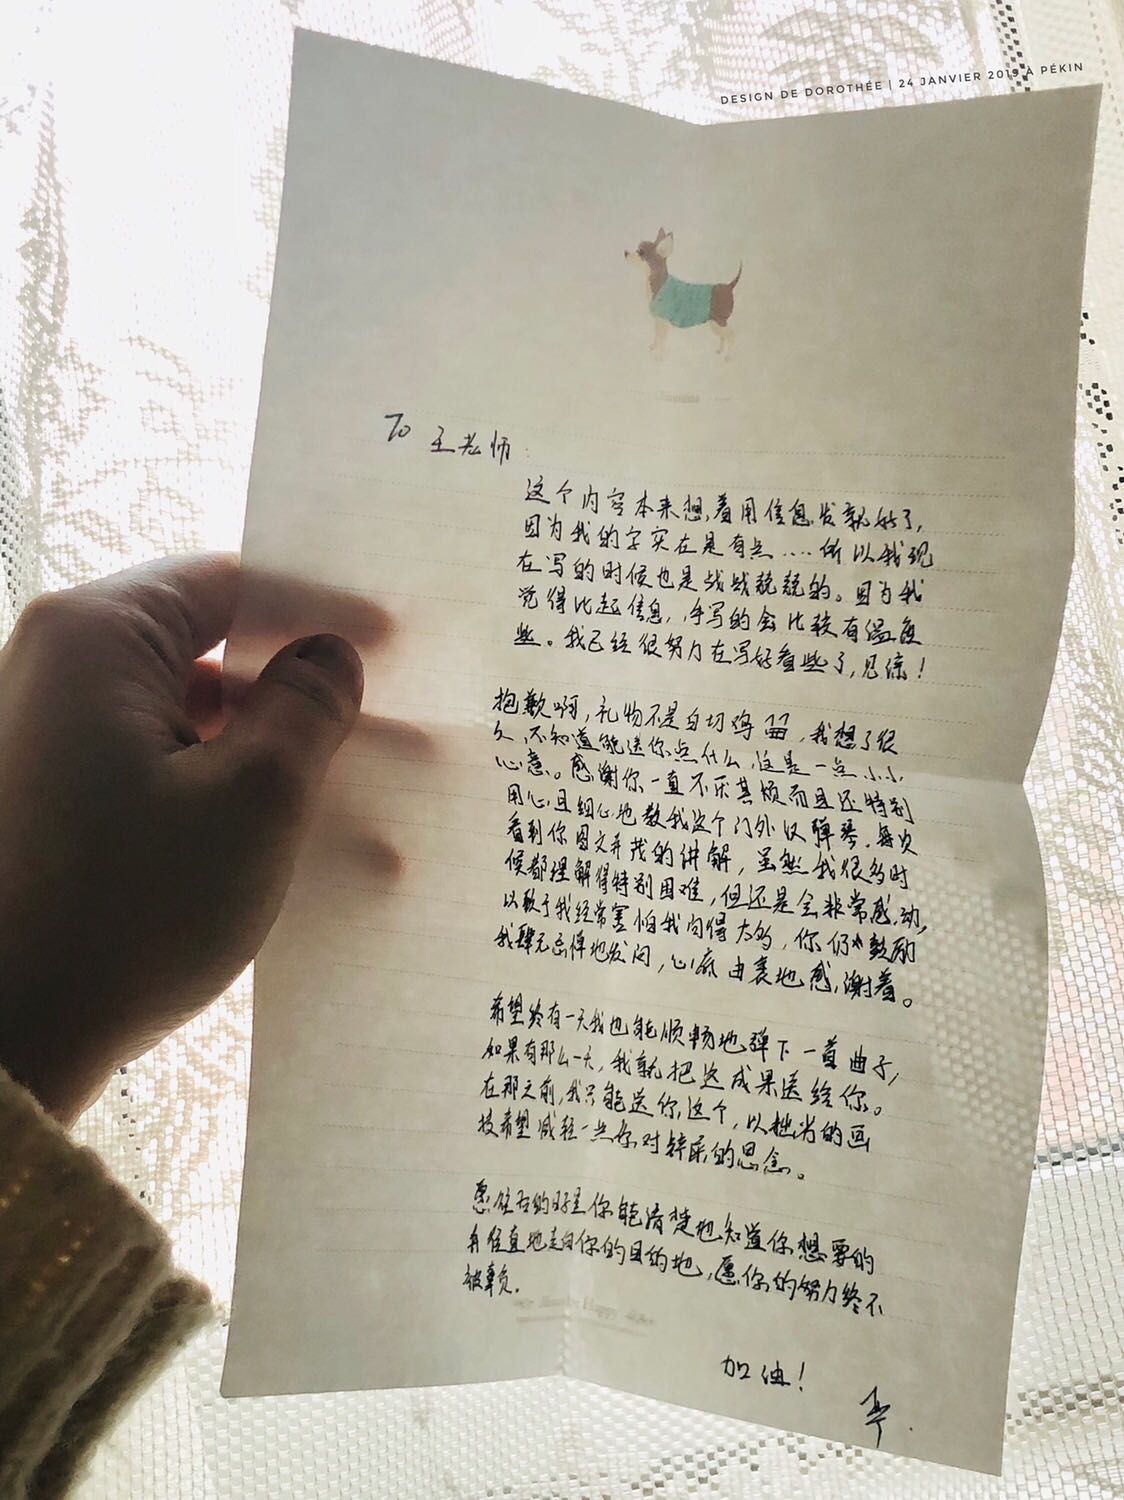 DESIGN DE DOROTHÉE | 24 JANVIER 2019 À PÉKIN
To 王老师:
这个内容本来想着用信息发就好了,
因为我的字实在是有点....所以我现
在写的时候也是战战兢兢的。因为我
觉得比起信息,手写的会比较有温度
些。我已经很努力在写好看些了,见谅!
抱歉啊,礼物不是白切鸡,我想了很
久,不知道能送你点什么,这是一点小小
心意。感谢你一直不厌其烦而且还特别
用心且细心地教我这个门外汉弹琴。每次
看到你图文并茂的讲解,虽然我很多时
候都理解得特别困难,但还是会非常感动,
以致于我经常害怕我问得太多,你仍鼓励
我肆无忌惮地发问,心底由衷地感谢着。
希望终有一天我也能顺畅地弹下一首曲子,
如果有那么一天,我就把这成果送给你。
在那之前,我只能送你这个,以拙劣的画
技希望减轻一点你对锌尿的思念。
愿往后的日子里你能清楚地知道你想要的
并径直地走向你的目的地,愿你的努力终不
被辜负。
加油!